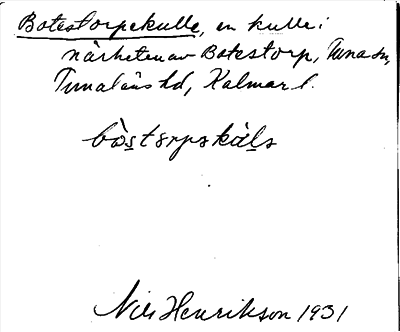 Botestorpekulle, en kulle i
närheten av Botestorp, Tuna sn,
Tunaläns hd, Kalmar l.
Nils Henrikson 1931